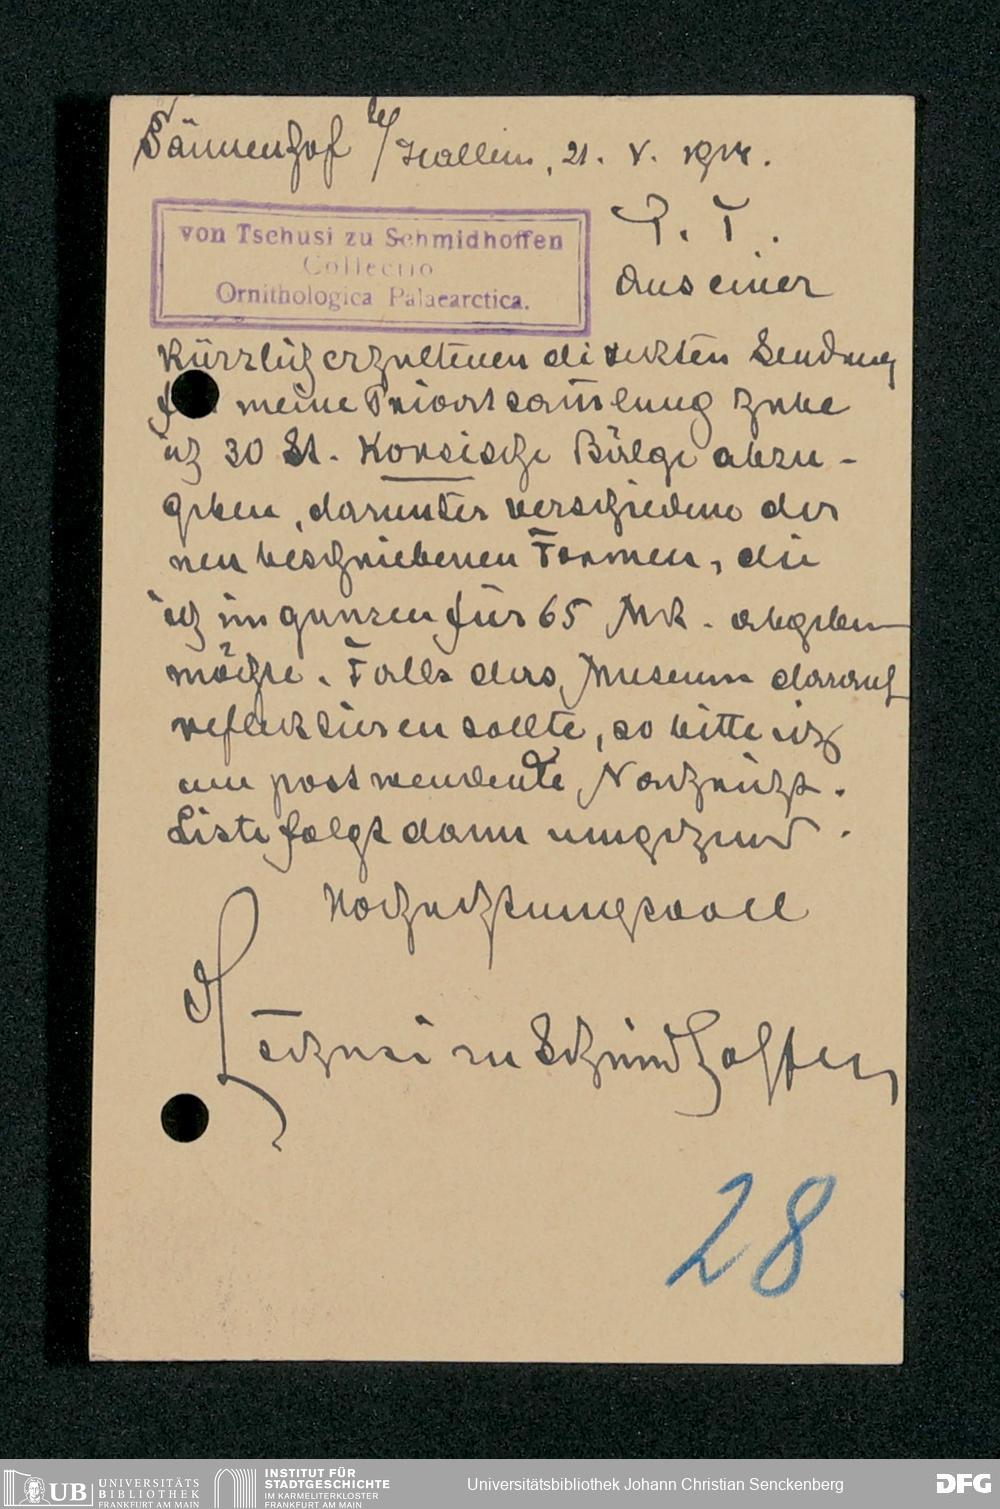 Tännenhof b/Hallein, 21. V. 1914.
von Tschusi zu Schmidhoffen
Collectio
Ornithologica Palaearctica.
P. T.
Aus einer
kürzlich erhaltenen direkten Sendung
für meine Privatsammlung habe
ich 30 St. Korsische Bälge abzu-
geben, darunter verschiedene der
neu beschriebenen Formen, die
ich im ganzen für 65 Mk. abgeben
möchte. Falls das Museum darauf
reflektieren sollte, so bitte ich
um postwendende Nachricht.
Liste folgt dann umgehend.
Hochachtungsvoll
Tschusi zu Schmidhoffen
28
UB UNIVERSITÄTS
BIBLIOTHEK
FRANKFURT AM MAIN
INSTITUT FÜR
STADTGESCHICHTE
IM KARMELITERKLOSTER
FRANKFURT AM MAIN
Universitätsbibliothek Johann Christian Senckenberg
DFG